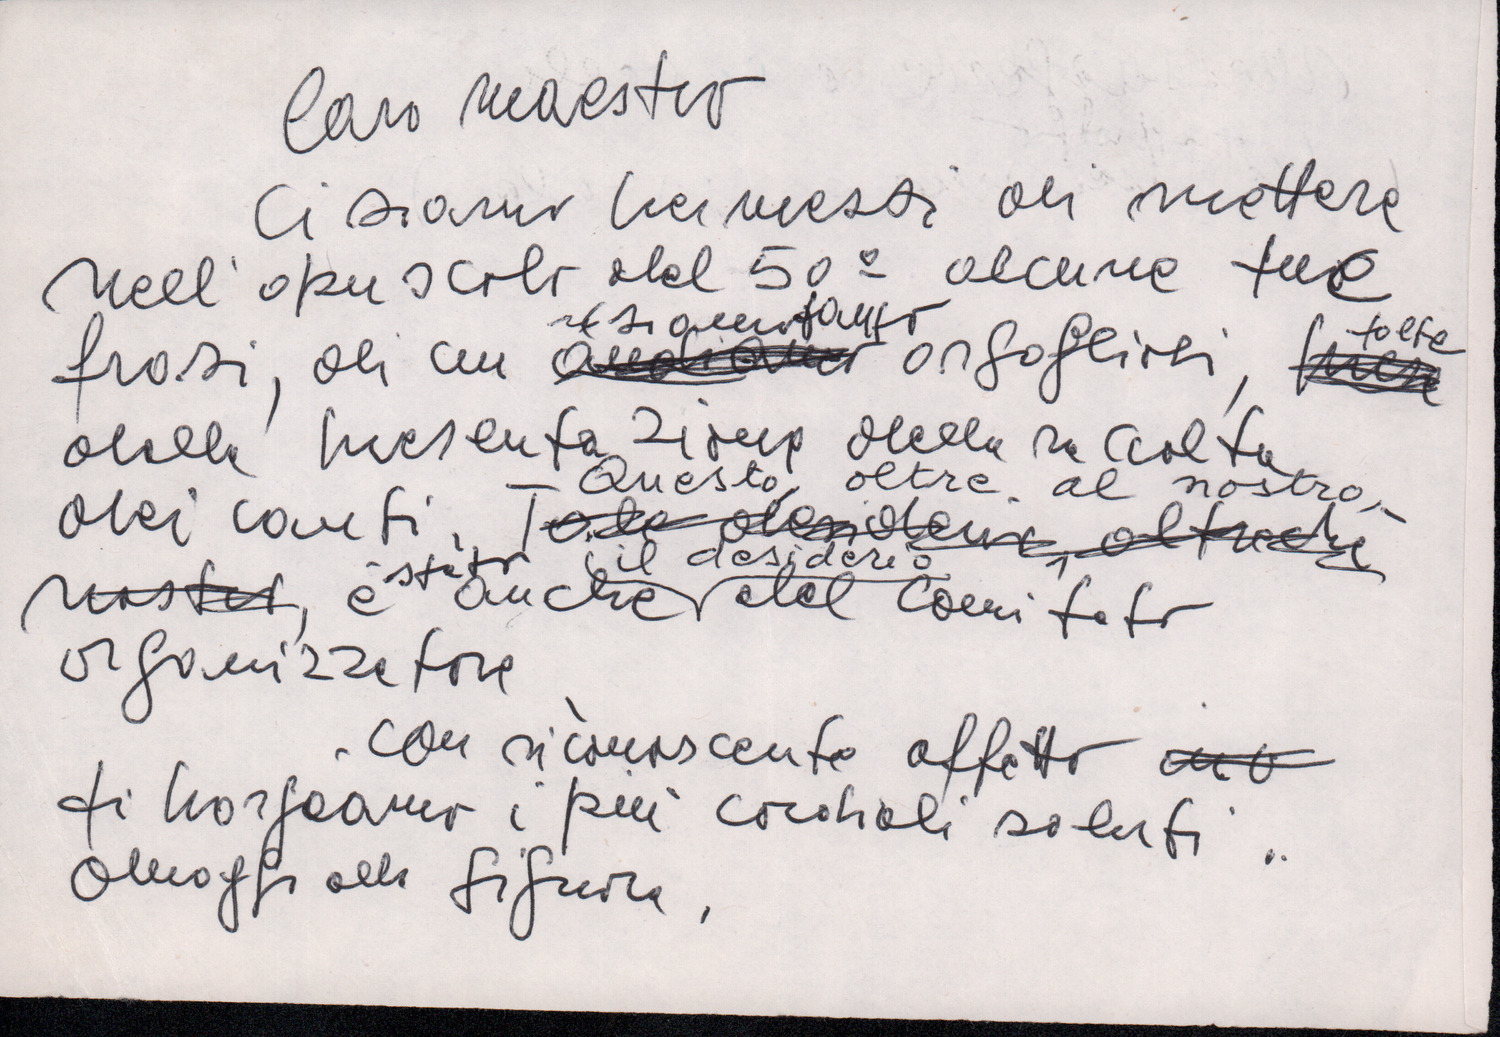 Caro Maestro
Ci siamo permessi di mettere
nell'opuscolo del 50º alcune tue
siamo tanto
frasi, di cui andiamo orgogliosi, tolte
dalla presentazione della raccolta
Questo, oltre al nostro,
dei canti. Tale desiderio, oltreché
stato il desiderio
nostro, è anche del Comitato
organizzatore
con riconoscente affetto
ti porgiamo i più cordiali saluti.
Omaggi alla Signora,